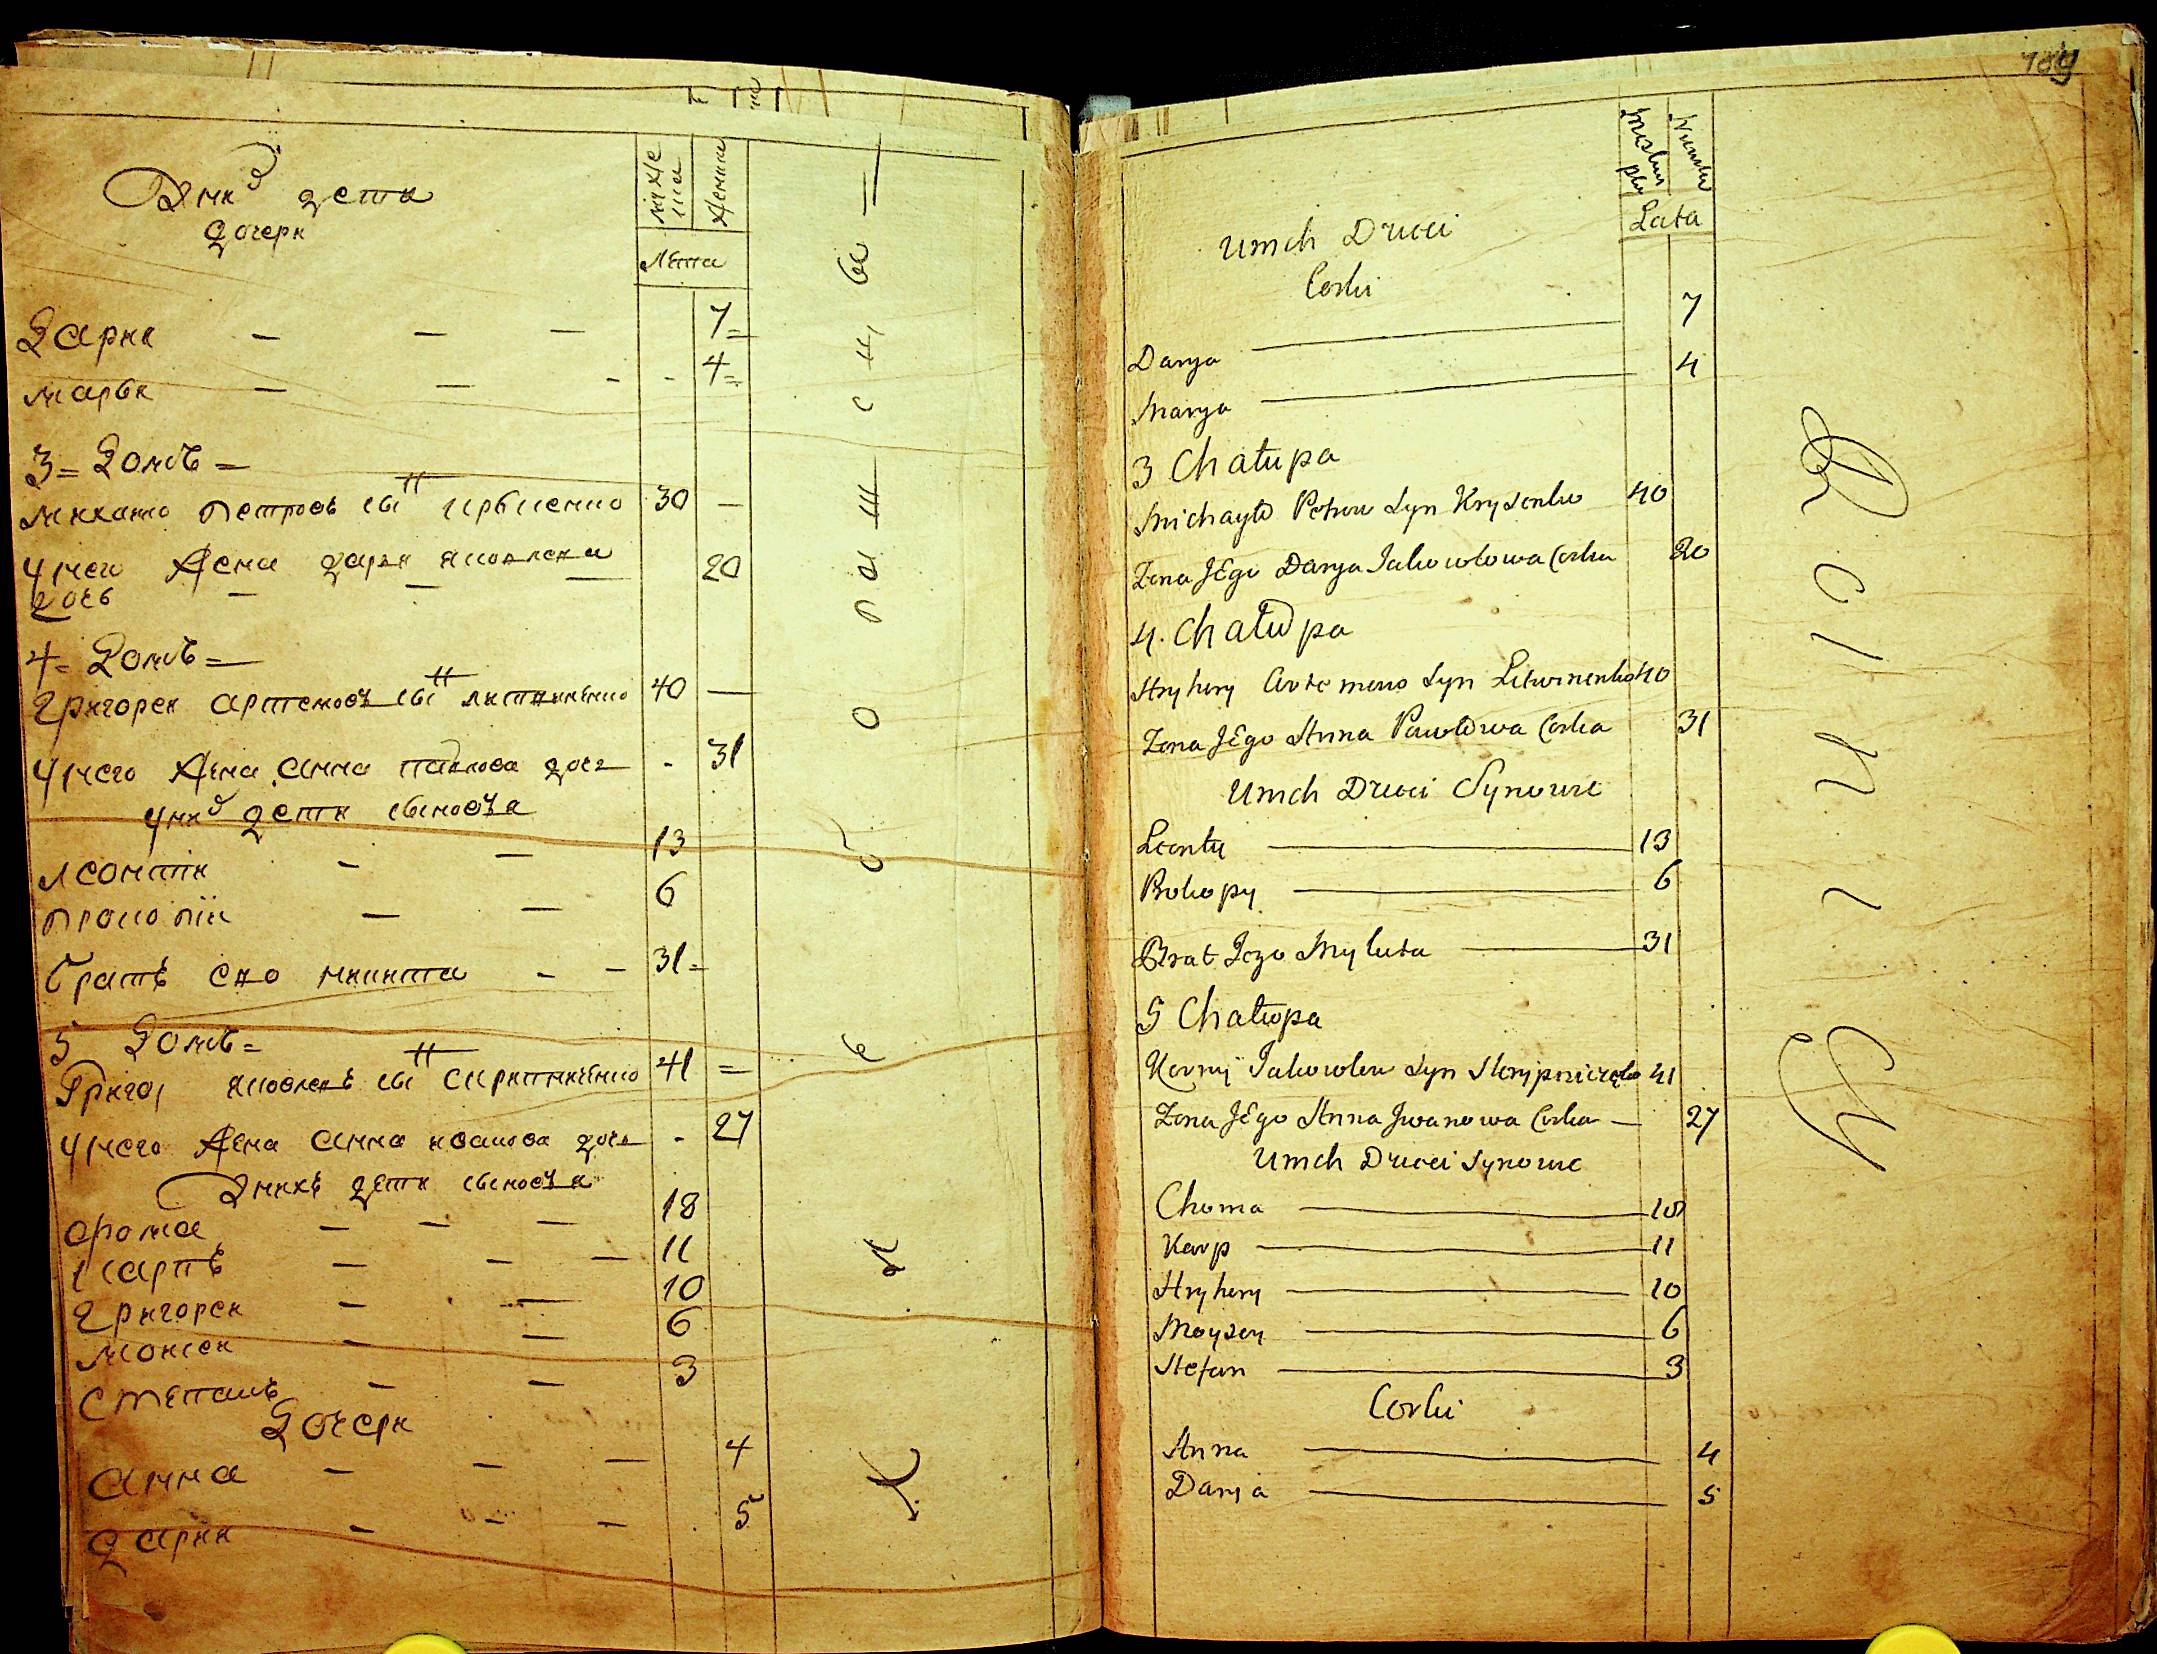 дети
дочери
Мужеска
Женска
Лета
Дария 7
Марья 4
3 Домъ
Михаило Петровъ сынъ 30
у него жена Дарья Яковлева 20
дочь
4 Домъ
Григорей Артемовъ сынъ Литвиненко 40
у него жена Анна Павлова дочь 31
у них дети сыновья
Леонтій 13
Прокопій 6
братъ его Микита 31
5 Домъ
Яковлевъ сынъ Скрипниченко 41
у него жена Анна Иванова дочь 27
у нихъ дети сыновья
Фома 18
Карпъ 11
Григорей 10
Моисей 6
Степанъ 3
Дочери
Анна 4
Дария 5
189
Lata
U nich Dzieci
Corki
Darya 7
Marya 4
3 Chałupa
Michayło Petrow Syn Krysenko 40
Zona Jego Darya Jakowlowa Corka 20
4. Chałupa
Hryhory Artemow Syn Litwinenko 40
Zona Jego Anna Pawłowa Corka 31
U nich Dzieci Synowie
Leonty 13
Prokopy 6
Brat Jego Mykita 31
5 Chałupa
Jakowlew Syn Skrypniczenko 41
Zona Jego Anna Iwanowa Corka 27
U nich Dzieci Synowie
Choma 18
Karp 11
Hryhory 10
Moysey 6
Stefan 3
Corki
Anna 4
Daria 5